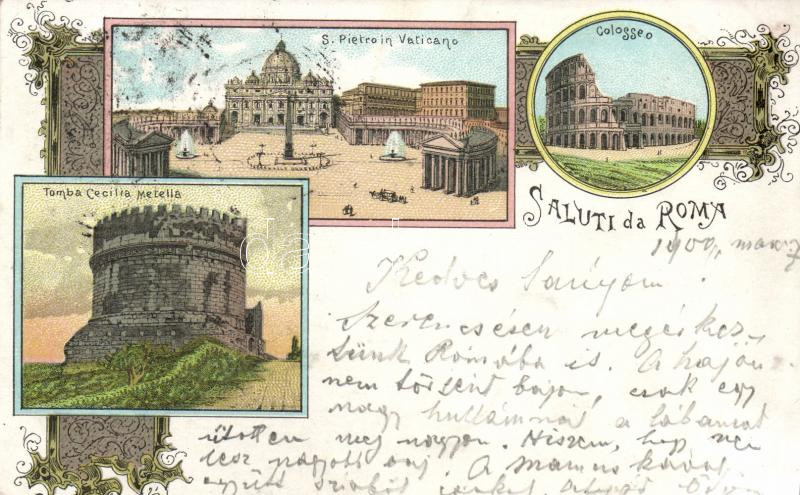 S. Pietro in Vaticano
Colosseo
Tomba Cecilia Metella
SALUTI da ROMA
Kedves Sanyom
Szerencsésen megérkez
tünk Rómába is. A hajón
nem történt bajom, csak egy
nagy hullámnál a lábamat
ütöttem meg nagyon. Hiszem, hogy nem
lesz nagyobb baj. A mamus